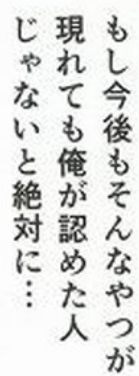 もし今後もそんなやつが
現れても俺が認めた人
じゃないと絶対に…